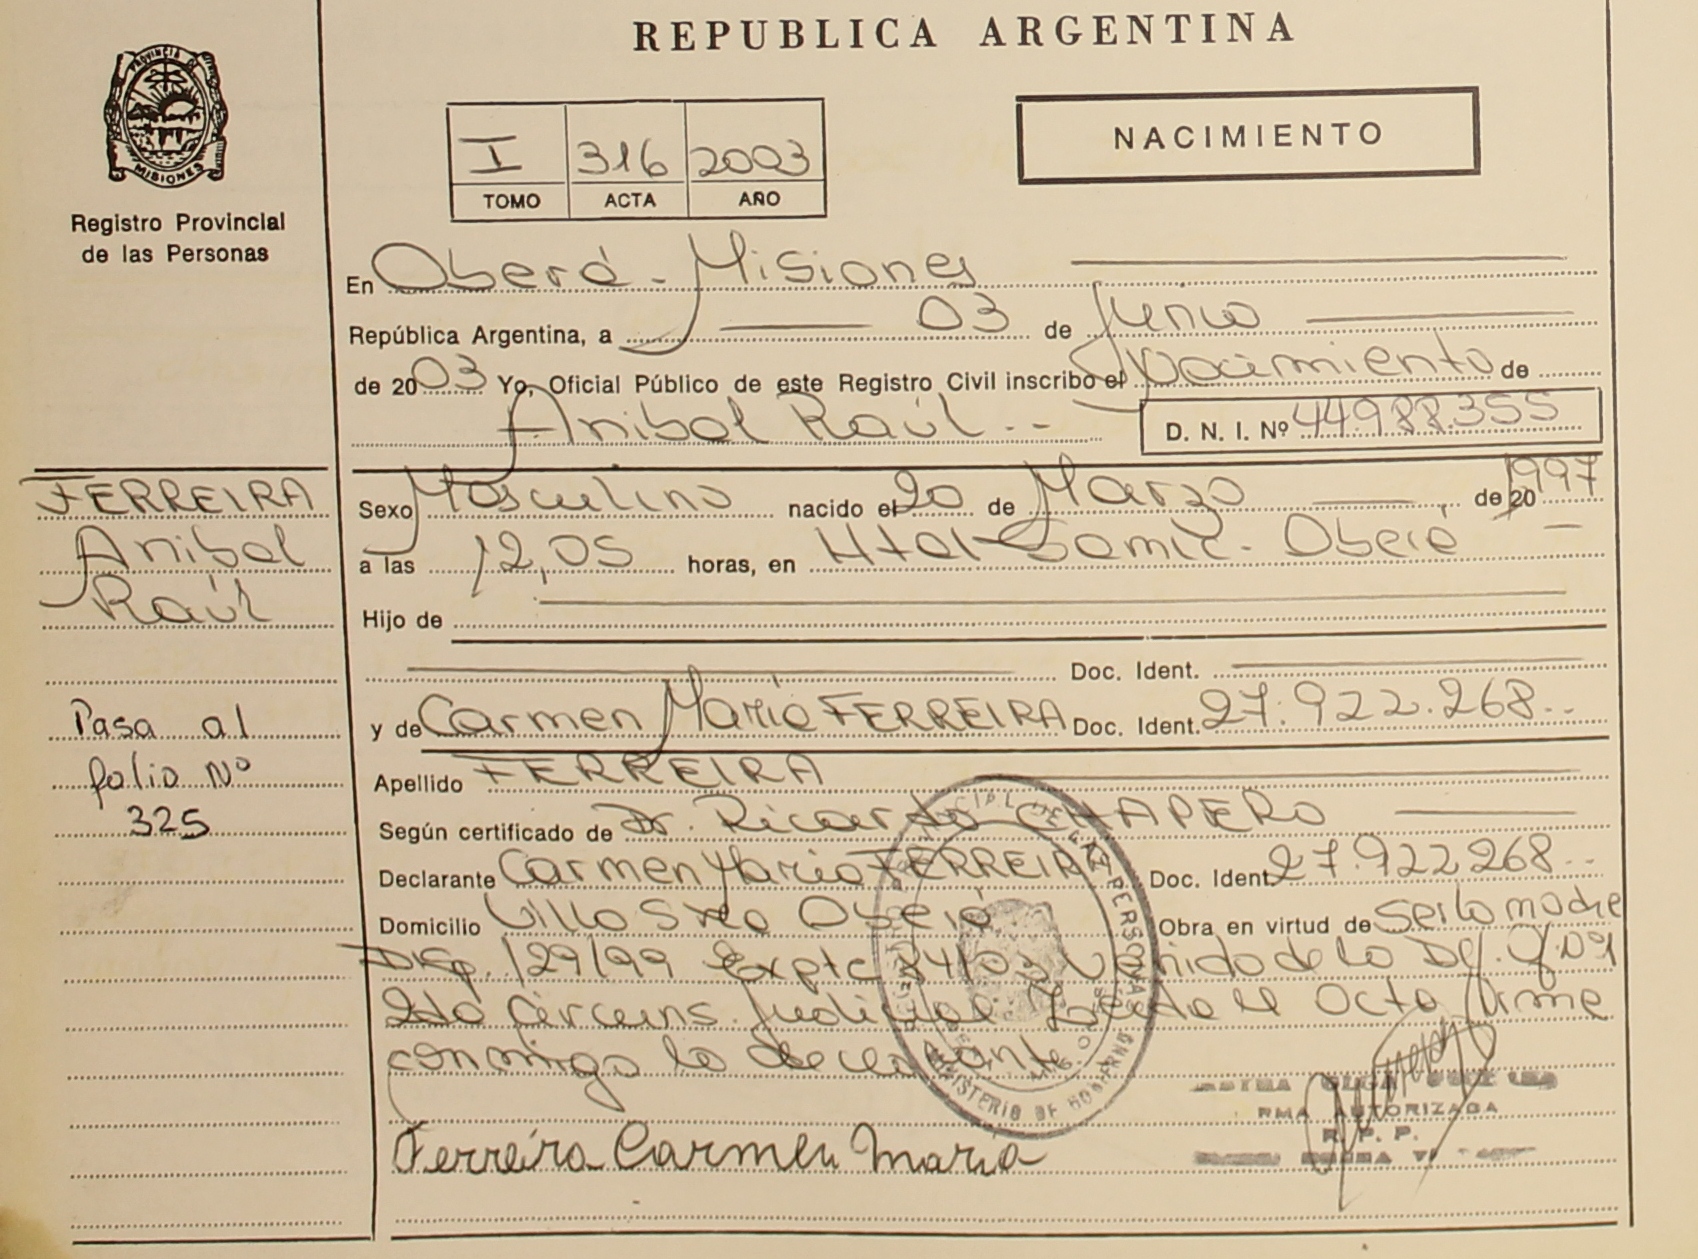 REPUBLICA ARGENTINA
PROVINCIA DE MISIONES
Registro Provincial
de las Personas
I 316 2003
TOMO ACTA AÑO
NACIMIENTO
En Oberá - Misiones
República Argentina, a 03 de Junio
de 2003 Yo, Oficial Público de este Registro Civil inscribo el Nacimiento de
Anibal Raúl -- D. N. I. Nº 44.988.355
FERREIRA
Anibal
Raúl
Pasa al
folio Nº
325
Sexo Masculino nacido el 20 de Marzo de 20 1997
a las 12,05 horas, en Htal Samic - Oberá
Hijo de
Doc. Ident.
y de Carmen María FERREIRA Doc. Ident. 27.922.268--
Apellido FERREIRA
Según certificado de Dr. Ricardo CHAPERO
Declarante Carmen María FERREIRA Doc. Ident. 27.922268--
Domicilio Villa Oberá Obra en virtud de ser la madre
Disp. 129/99 Expte 84/03 de la Nº1
2da Circuns. Judicial. Leída el Acta firma
conmigo la declarante
Ferreira Carmen Maria
AUTORIZADA
R. P. P.
MINISTERIO DE GOBIERNO